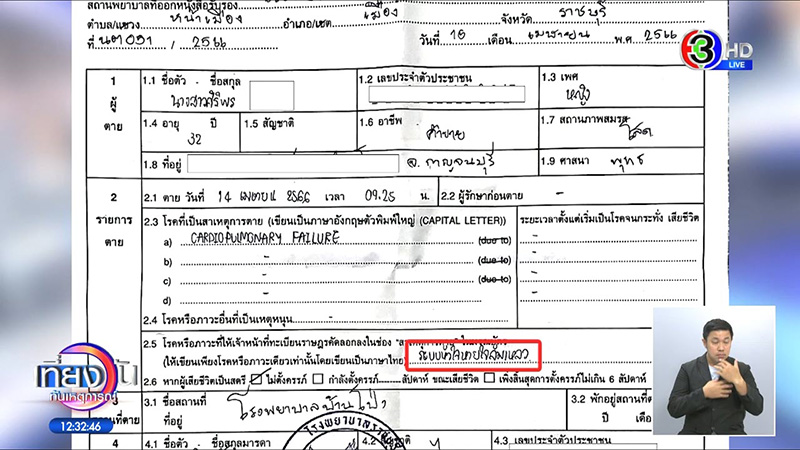 สถานพยาบาลที่ออกหนังสือรับรอง
ตำบล/แขวง หน้าเมือง อำเภอ/เขต เมือง จังหวัด ราชบุรี
ที่ / 2566 วันที่ 16 เดือน เมษายน พ.ศ 2566
3 HD
LIVE
1
ผู้
ตาย
1.1 ชื่อตัว - ชื่อสกุล
นางสาวศิริพร
1.2 เลขประจำตัวประชาชน
1.3 เพศ
หญิง
1.4 อายุ ปี
32
1.5 สัญชาติ
1.6 อาชีพ
ค้าขาย
1.7 สถานภาพสมรส
โสด
1.8 ที่อยู่ จ. กาญจนบุรี
1.9 ศาสนา พุทธ
2
รายการ
ตาย
2.1 ตาย วันที่ 14 เมษายน 2566 เวลา 09.25 น.
2.2 ผู้รักษาก่อนตาย -
2.3 โรคที่เป็นสาเหตุการตาย (เขียนเป็นภาษาอังกฤษตัวพิมพ์ใหญ่ (CAPITAL LETTER))
ระยะเวลาตั้งแต่เริ่มเป็นโรคจนกระทั่ง เสียชีวิต
a) CARDIOPULMONARY FAILURE (due to) -
b) - (due to) -
c) - (due to) -
d) - -
2.4 โรคหรือภาวะอื่นที่เป็นเหตุหนุน -
2.5 โรคหรือภาวะที่ให้เจ้าหน้าที่ทะเบียนราษฎรคัดลอกลงในช่อง
(ให้เขียนเพียงโรคหรือภาวะเดียวเท่านั้นโดยเขียนเป็นภาษาไทย) ระบบหัวใจหายใจล้มเหลว
2.6 หากผู้เสียชีวิตเป็นสตรี ไม่ตั้งครรภ์ กำลังตั้งครรภ์ สัปดาห์ ขณะเสียชีวิต เพิ่งสิ้นสุดการตั้งครรภ์ไม่เกิน 6 สัปดาห์
3
สถานที่ตาย
3.1 ชื่อสถานที่
ที่อยู่
โรงพยาบาลบ้านโป่ง
3.2 พักอยู่สถานที่
ปี เดือ
4
4.1 ชื่อตัว ชื่อสกุลมารดา
โรงพยาบาลรา
4.2
4.3 เลขประจำตัวประชาชน
เที่ยงวัน
ทันเหตุการณ์
12:32:46